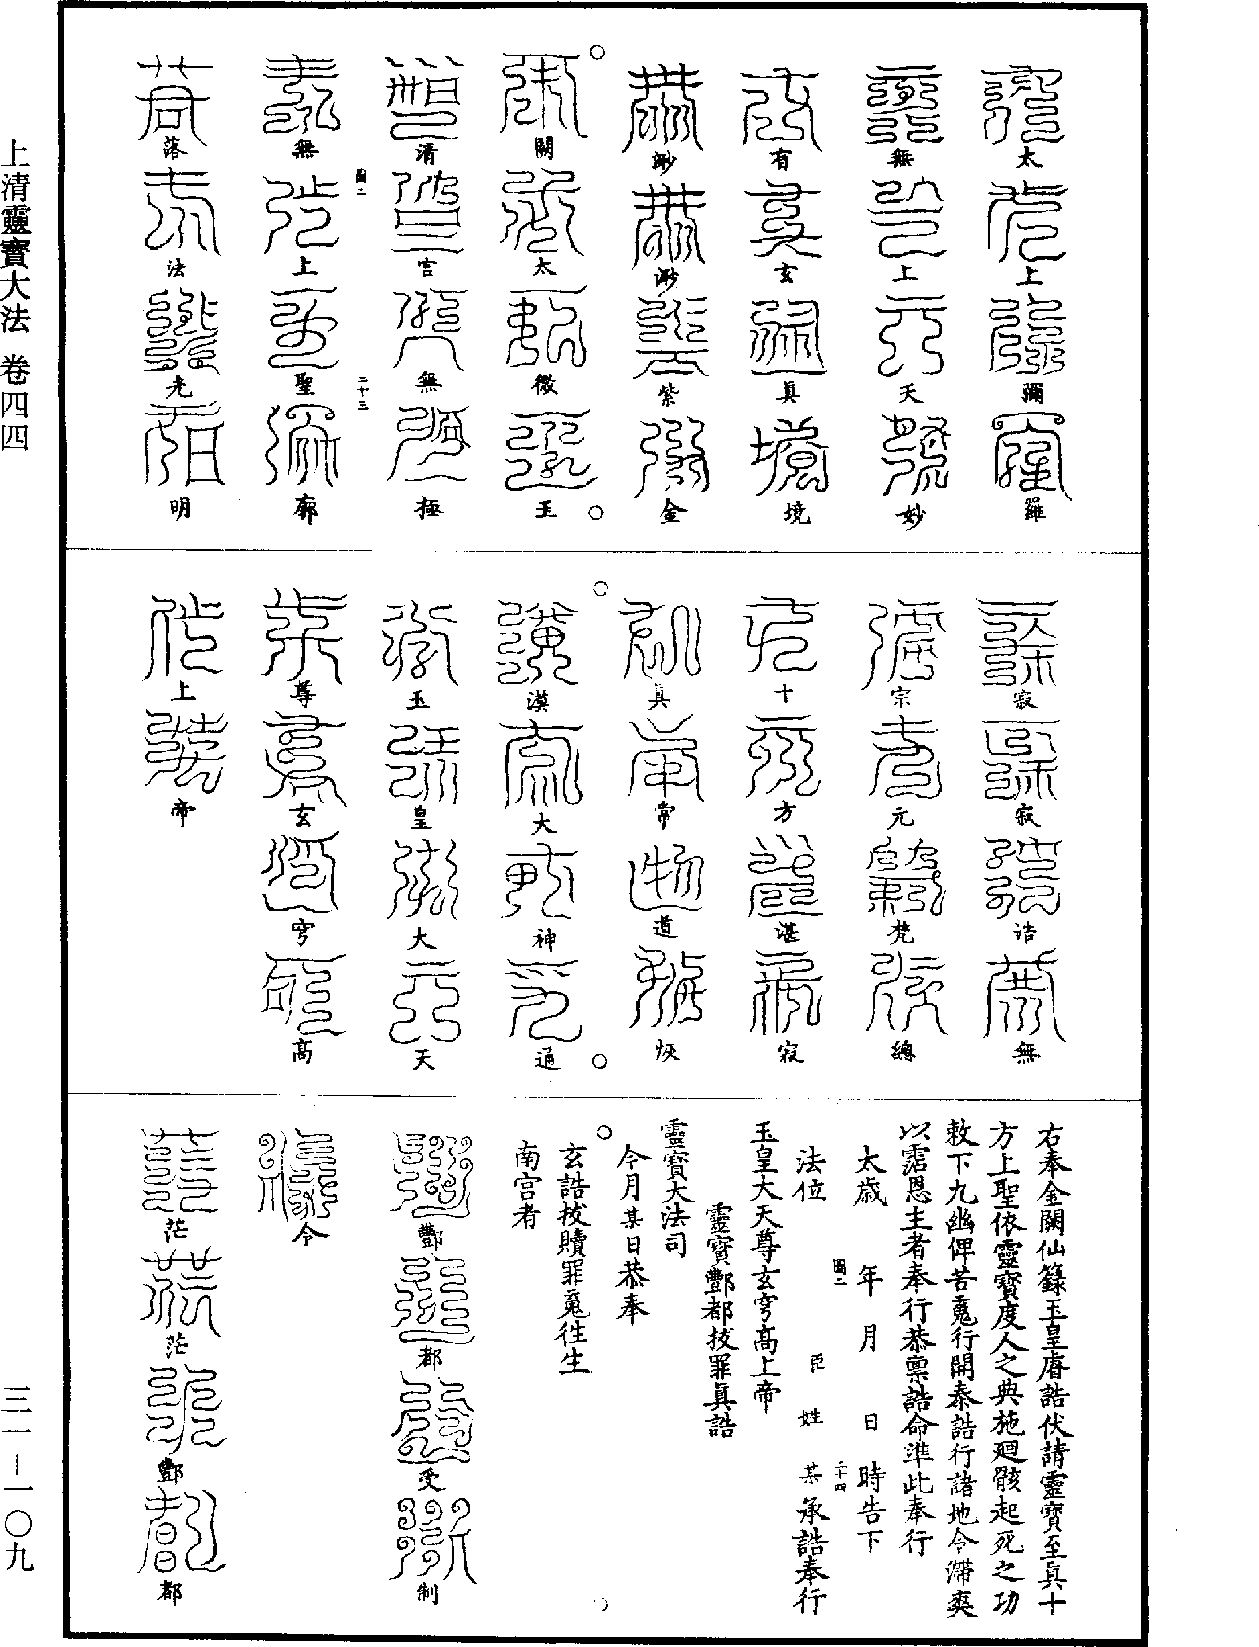 太上彌羅
無上天妙
有玄真境
渺渺紫金
闕太微玉
清宮無極
無上聖廓
圖二 二十三
落法光明
寂寂誥無
宗元梵總
十方湛寂
真常道恢
漠大神通
玉皇大天
尊玄穹高
上帝
右奉金闕仙籙玉皇睿誥伏請靈寶至真十
方上聖依靈寶度人之典施迴骸起死之功
敕下九幽俾苦䰟行開泰誥行諸地令滯爽
以霑恩主者奉行恭稟誥命準此奉行
太歲 年 月 日 時告下
圖二 二十四
法位 臣 姓 某承誥奉行
玉皇大天尊玄穹高上帝
靈寶酆都拔罪真誥
靈寶大法司
今月某日恭奉
玄誥拔贖罪䰟徃生
南宮者
酆都受制
令
茫茫酆都
上清靈寶大法 卷四四
三一－一〇九